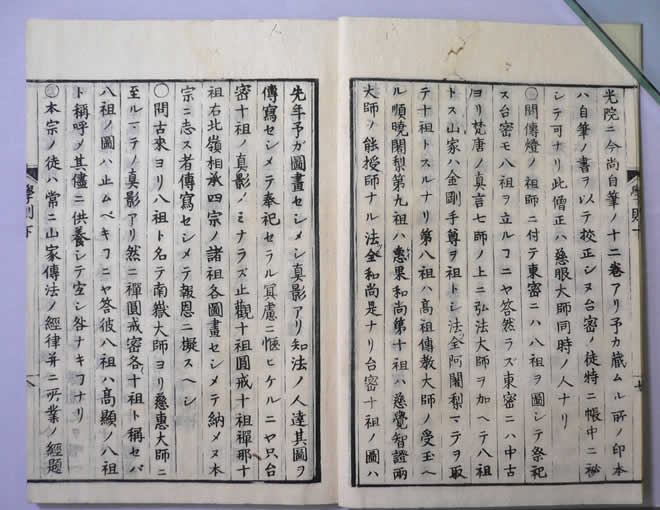 光院ニ今尚自筆ノ十二巻アリ予カ藏ムル所ノ印本
ハ自筆ノ書ヲ以テ校正シヌ台密ノ徒特ニ帳中ニ祕
シテ可ナリ此僧正ハ慈眼大師同時ノ人ナリ
〇問傳燈ノ祖師ニ付テ東密ニハ八祖ヲ圖シテ祭祀
ス台密モ八祖ヲ立ルコニヤ答然ラズ東密ニハ中古
ヨリ梵唐ノ真言七師ノ上ニ弘法大師ヲ加ヘテ八祖
トス山家ハ金剛手尊ヲ祖トシ法全阿闍梨マテヲ取
テ十祖トスルナリ第八祖ハ高祖傳教大師ノ受玉ヘ
ル順曉闍梨第九祖ハ惠果和尚第十祖ハ慈覺智證兩
大師ノ能授師ナル法全和尚是ナリ台密十祖ノ圖ハ
學則下
七
先年予カ圖畫セシメシ真影アリ知法ノ人達其圖ヲ
傳寫セシメテ奉祀セラル冥慮ニ愜ヒケルニヤ只台
密十祖ノ真影ノミナラズ止觀十祖圓戒十祖禪那十
祖右北嶺相承四宗ノ諸祖各圖畫セシメテ納メヌ本
宗ニ志ス者傳寫セシメテ報恩ニ擬スヘシ
〇問古來ヨリ八祖ト名テ南嶽大師ヨリ慈惠大師ニ
至ルマテノ真影アリ然ニ禪圓戒密各十祖ト稱セバ
八祖ノ圖ハ止ムベキコニヤ答彼八祖ハ髙顯ノ八祖
ト稱呼メ其儘ニ供養シテ空シ咎ナキコナリ
本宗ノ徒ハ常ニ山家傳法ノ經律并ニ所業ノ經題
學則下
八